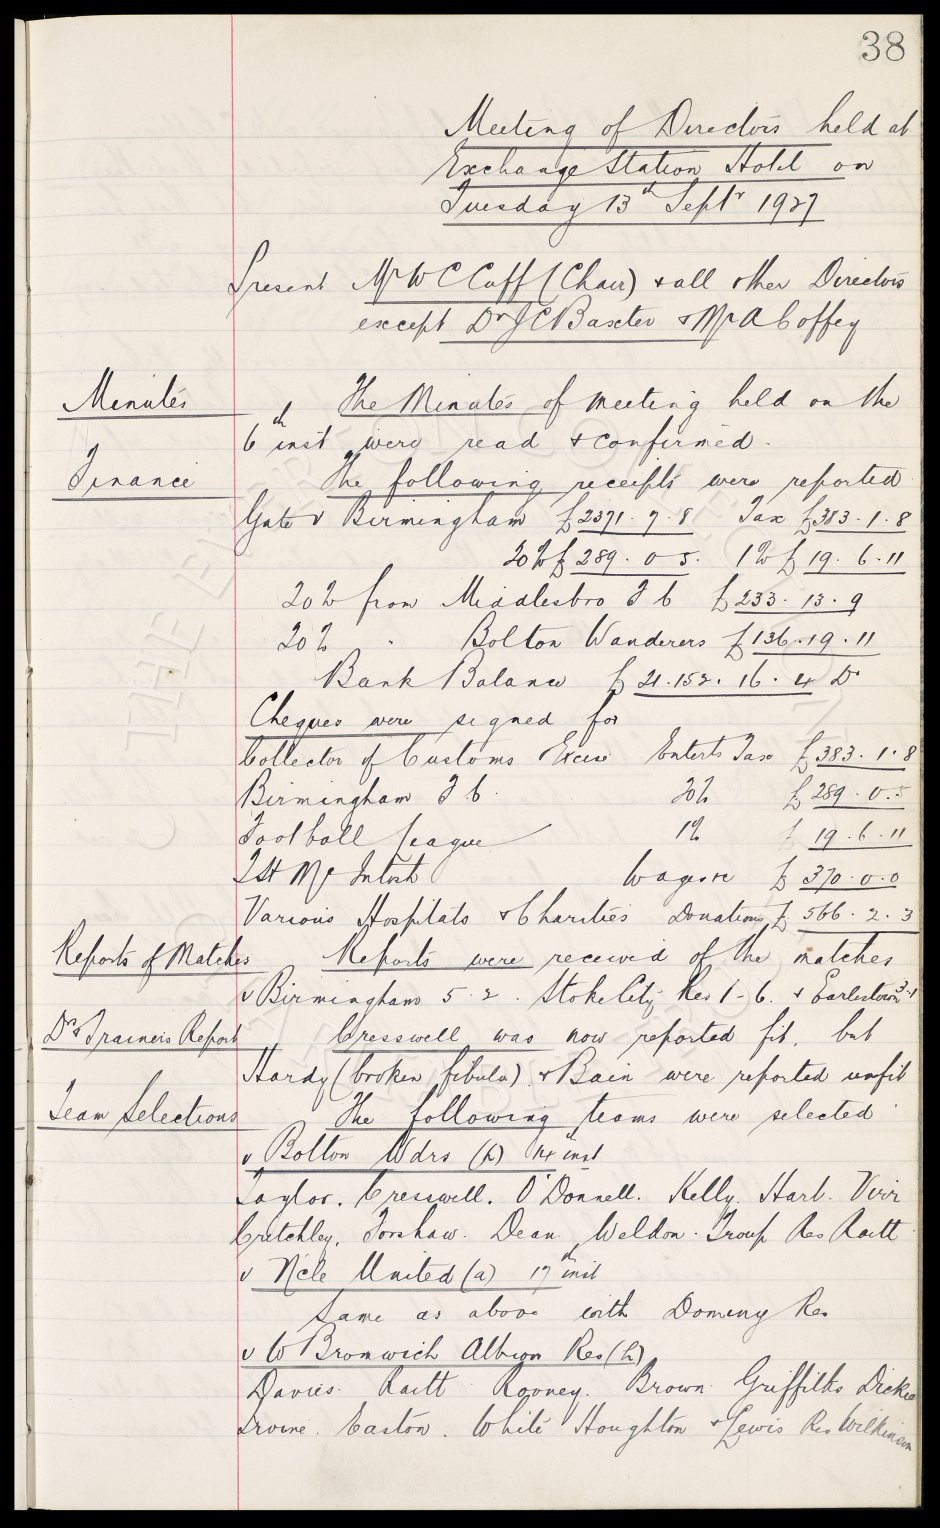 38
Meeting of Directors held at
Exchange Station Hotel on
Tuesday 13th Septr 1927
Present Mr W C Cuff (Chair) & all other Directors
except Dr J C Baxter & Mr A Coffey
Minutes The Minutes of meeting held on the
6th inst were read & confirmed.
Finance The following receipts were reported
Gate v Birmingham £2371.7.8 Tax £383.1.8
20% £289.0.5. 1% £19.6.11
20% from Middlesbro F C £233.13.9
20% " Bolton Wanderers £136.19.11
Bank Balance £21.152.16.4 Dr
Cheques were signed for
Collector of Customs & Excise Enterts Tax £383.1.8
Birmingham F C. 20% £289.0.5
Football League 1% £19.6.11
T H McIntosh Wages &c £370.0.0
Various Hospitals & Charities Donations £566.2.3
Reports of Matches Reports were received of the matches
v Birmingham 5.2. Stoke City Res 1-6. & Earlestown 3-1
Dr & Trainers Report Cresswell was now reported fit, but
Hardy (broken fibula) & Bain were reported unfit
Team Selections The following teams were selected
v Bolton Wdrs (h) 14th inst
Taylor. Cresswell. O'Donnell. Kelly. Hart. Virr
Critchley. Forshaw. Dean. Weldon. Troup Res Raitt
v N'cle United (a) 17th inst
Same as above with Dominy Res
v W Bromwich Albion Res (h)
Davies. Raitt. Rooney. Brown. Griffiths Dickie
Irvine. Easton. White Houghton & Lewis Res Wilkinson